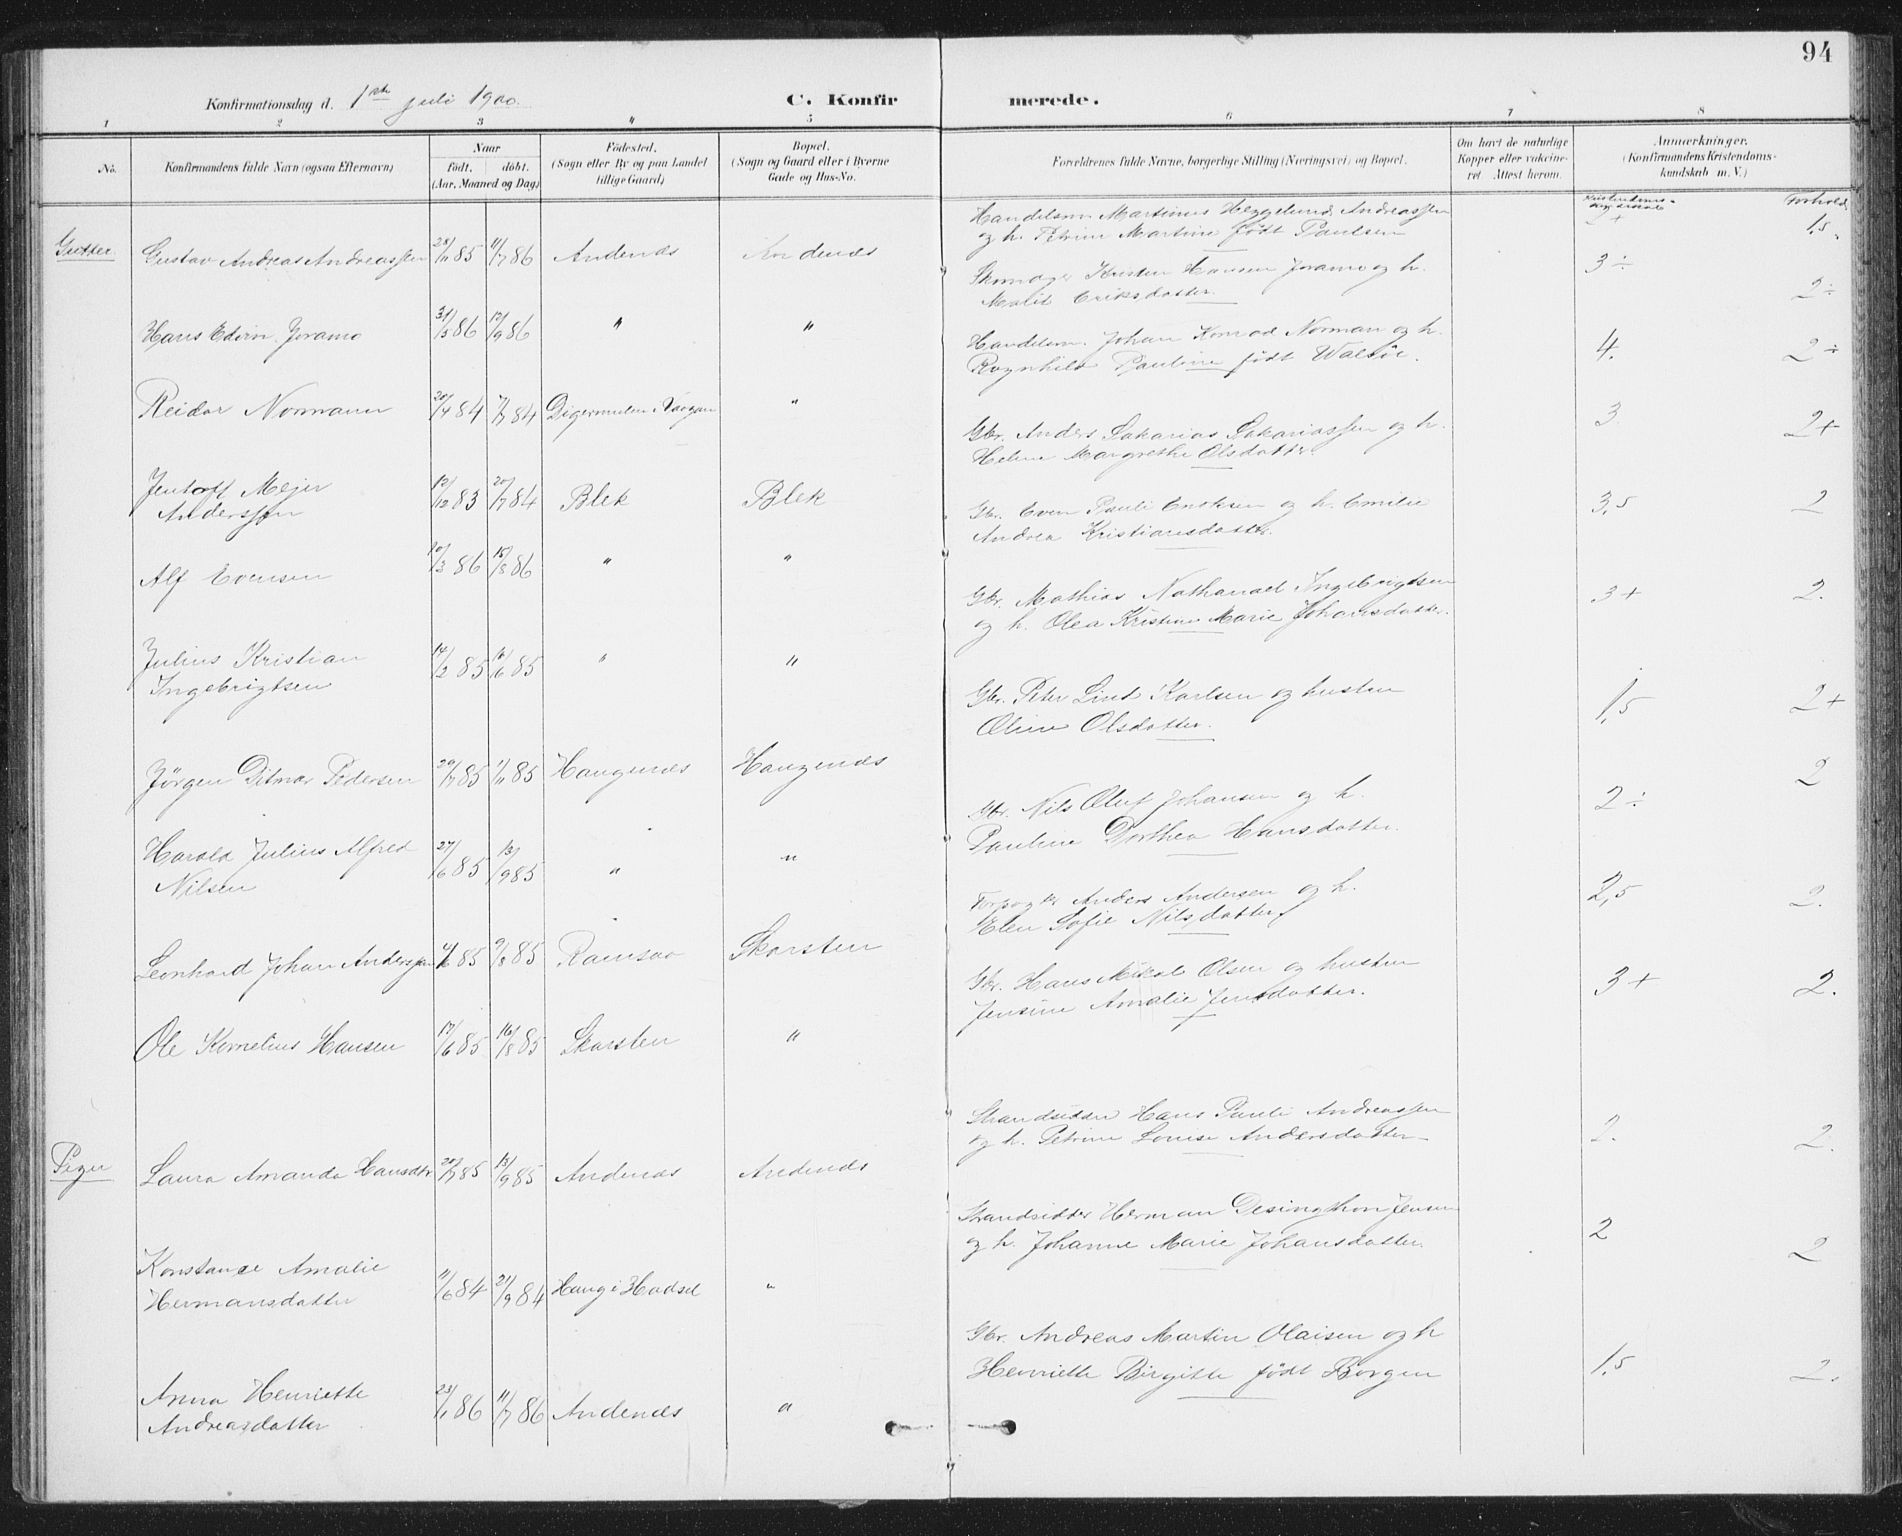 94
Konfirmationsdag d. 1ste juli 1900.
C. Konfirmerede.
1 2 3 4 5 6 7 8
No.
Konfirmandens fulde Navn (ogsaa Efternavn)
Naar
født. døbt.
(Aar, Maaned og Dag)
Fødested.
(Sogn eller By og paa Landet
tillige Gaard)
Bopæl.
(Sogn og Gaard eller i Byerne
Gade og Hus-No.
Forældrenes fulde Navne, borgerlige Stilling (Næringsvei) og Bopæl.
Om havt de naturlige
Kopper eller vakcine-
ret. Attest herom.
Anmærkninger.
(Konfirmandens Kristendoms-
kundskab m. V.)
Forhold
Gutter.
Gustav Andreas Andreassen 28/11 85 11/7 86 Andenæs Andenæs
Handelsm Martinus Heggelund Andreassen
og h. Petrine Martine født Paulsen
2+ 1,5
Hans Edvin Joramo 31/5 86 12/9 86 " "
Skomager Kristen Hansen Joramo og h.
Malit Eriksdatter.
3÷ 2÷
Reidar Normann 20/4 84 7/7 84 Digermulen i Vaagan "
Handelsm. Johan Konrad Norman og h.
Ragnhild Pauline født Walsøe.
4. 2÷
Jentoft Mejer
Anderssen 12/12 83 20/7 84 Blek Blek
Gbr. Anders Sakarias Sakariassen og h.
Helene Margrethe Olsdatter.
3 2+
Alf Evensen 10/3 86 15/8 86 " "
Gbr. Even Pauli Enoksen og h. Emilie
Andrea Kristiansdatter.
3,5 2
Julius Kristian
Ingebrigtsen 14/2 85 16/6 85 " "
Gbr. Mathias Nathanael Ingebrigtsen
og h. Olea Kristine Marie Johansdatter.
3+ 2.
Jörgen Ditmar Pedersen 20/7 85 1/11 85 Haugenæs Haugenæs
Gbr. Peter Lind Karlsen og hustru
Oline Olsdatter.
1,5 2+
Harald Julius Alfred
Nilsen 27/6 85 13/9 85 " "
Gbr. Nils Oluf Johansen og h.
Pauline Dorthea Hansdatter.
2÷ 2
Leonhard Johan Anderssen 4/6 85 9/8 85 Ramsaa Skarsten
Anders Andersen og h.
Elen Sofie Nilsdatter
2,5 2.
Ole Kornelius Hansen 17/6 85 16/8 85 Skarsten "
Gbr. Hans Mikal Olsen og hustru
Jensine Amalie Jensdatter.
3+ 2.
Piger
Laura Amanda Hansdtr 20/7 85 13/9 85 Andenæs Andenæs
Strandsidder Hans Pauli Andreassen
og h. Petrine Louise Andersdatter
2. 2.
Konstance Amalie
Hermansdatter 11/6 84 21/9 84 Haug i Hadsel "
Strandsidder Herman Desingthon Jensen
og h. Johanne Marie Johansdatter.
2 2
Anna Henriette
Andreasdatter 23/1 86 11/7 86 Andenæs "
Gbr. Andreas Martin Olaisen og h
Henriette Birgitte født Borgen
1,5 2.